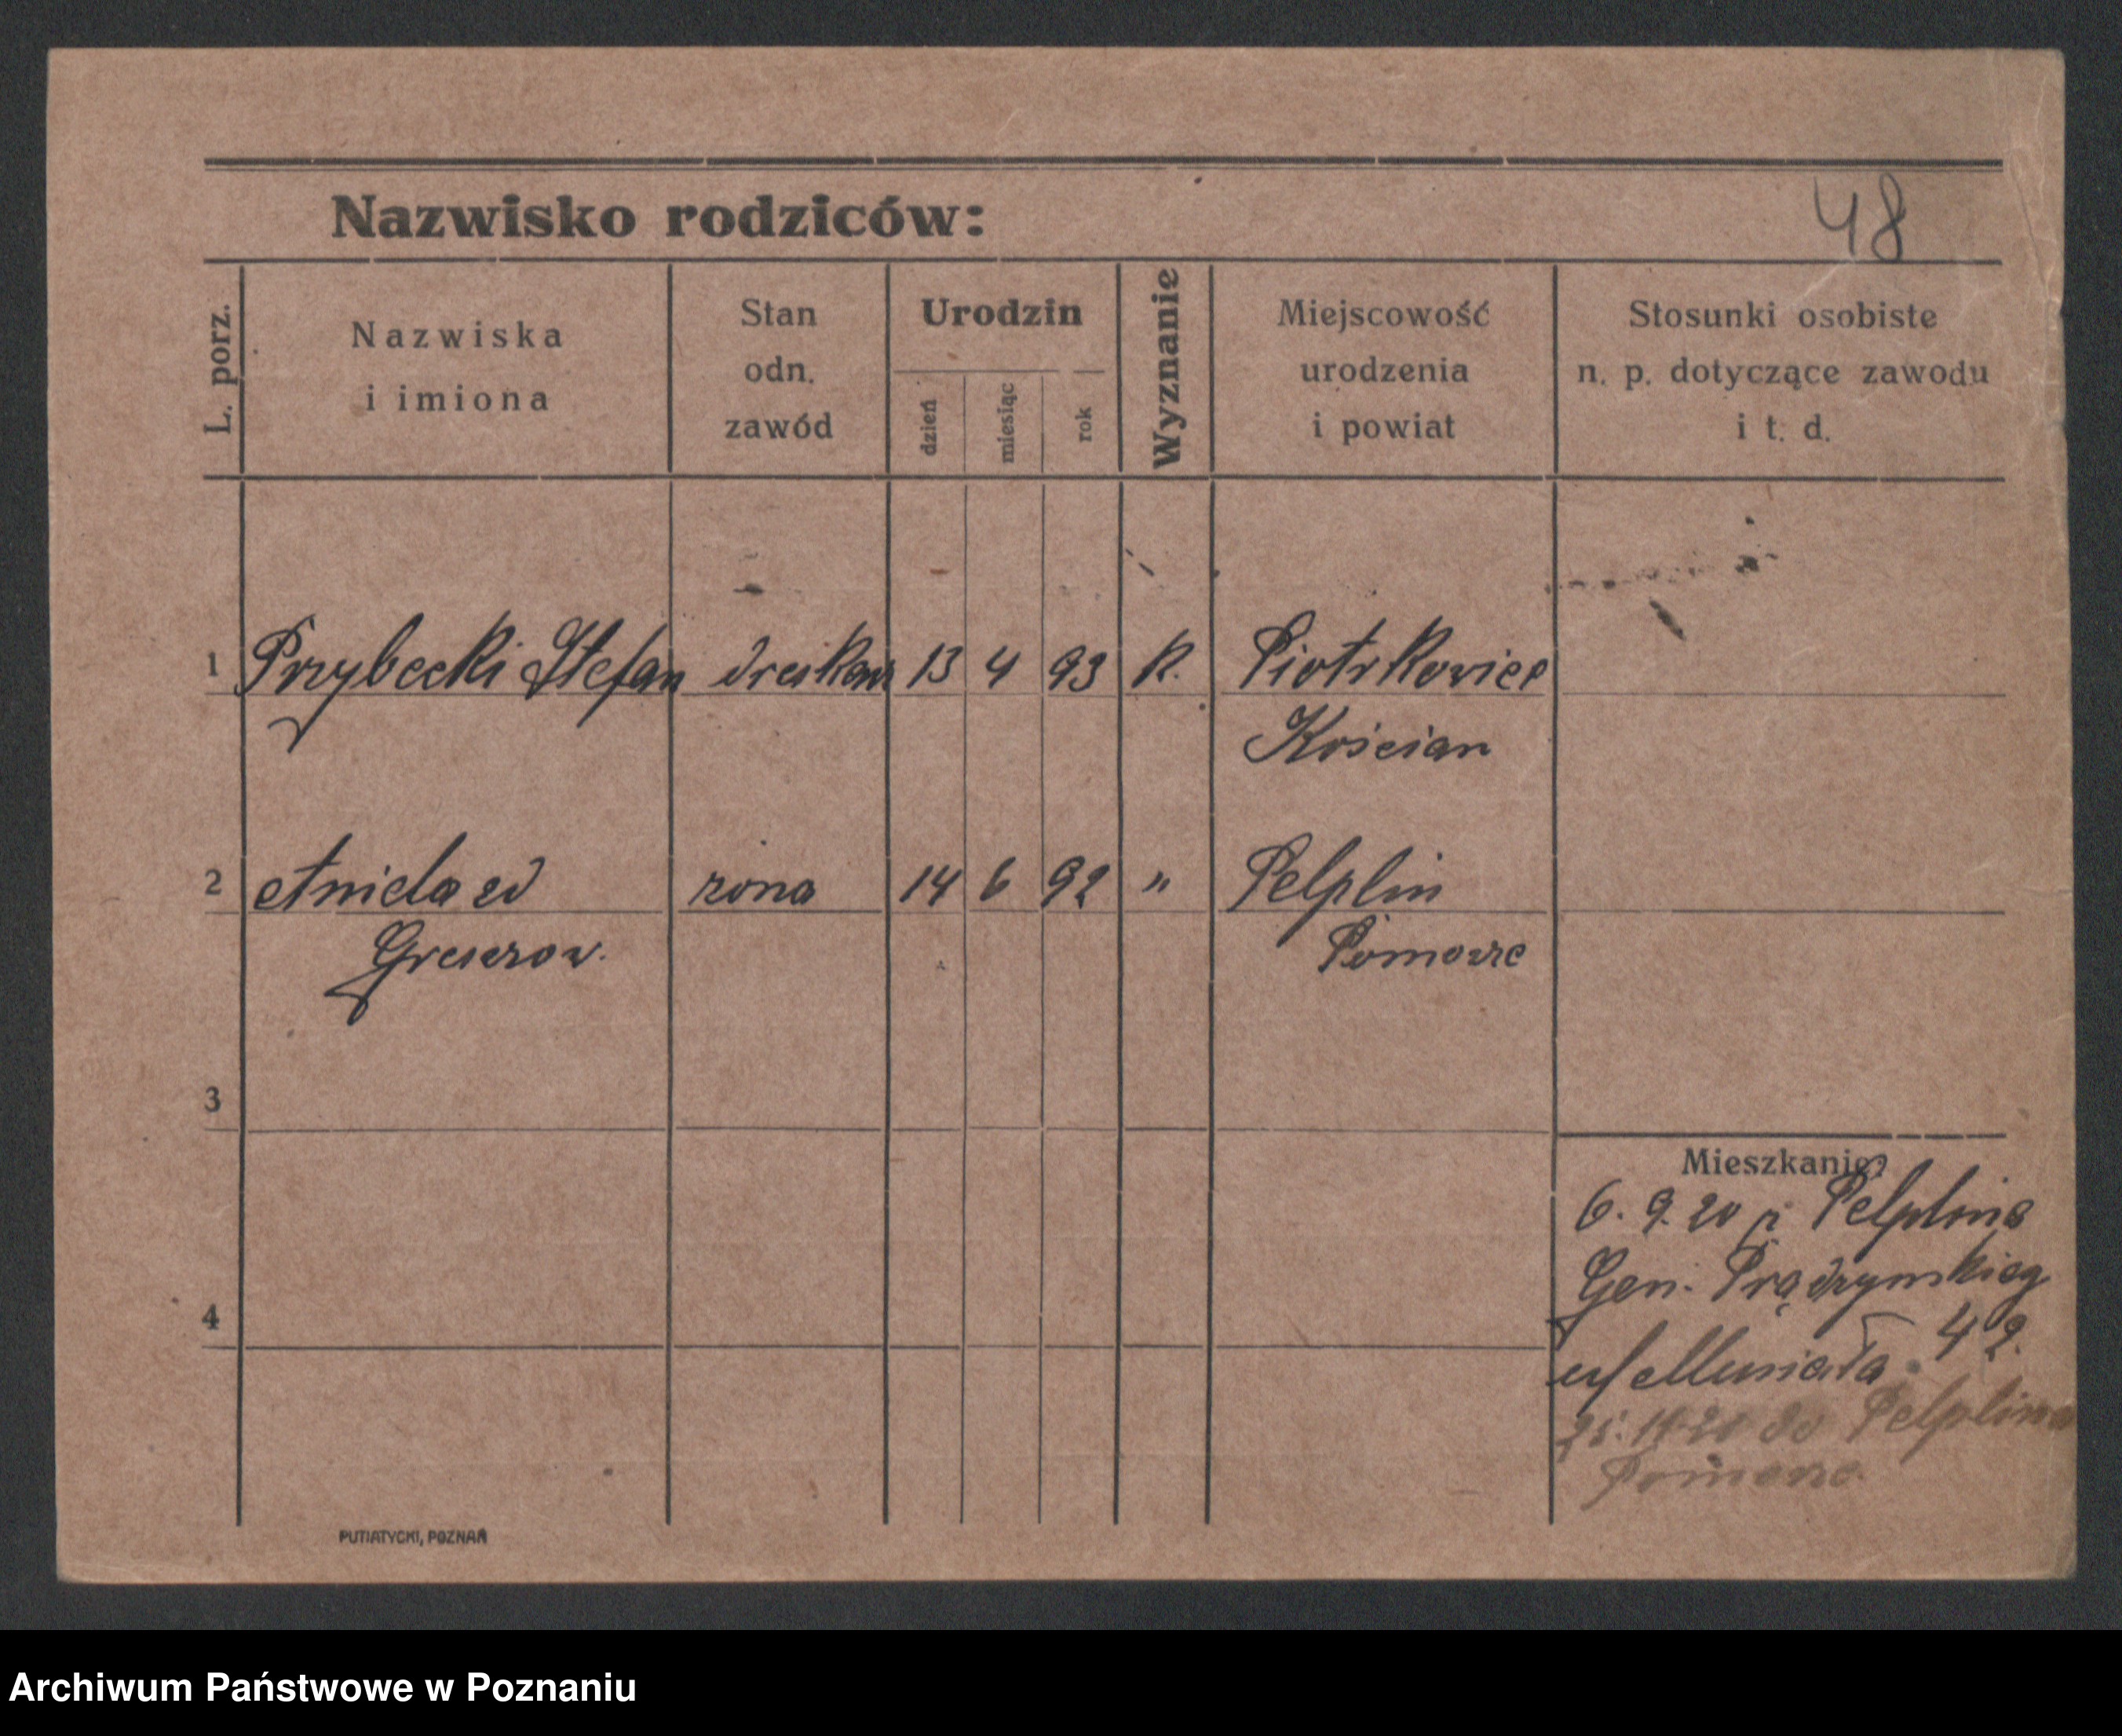 Nazwisko rodziców:
48
L. porz.
Nazwiska
i imiona
Stan
odn.
zawód
Urodzin
dzień
miesiąc
rok
Wyznanie
Miejscowość
urodzenia
i powiat
Stosunki osobiste
n. p. dotyczące zawodu
i t. d.
1 Przybecki Stefan 13 4 93 K. Piotrkowice
Kościan
2 Aniela zd żona 14 6 92 " Pelplin
Pomorze
3
Mieszkanie:
6. 9. 20 z Pelplina
Gen. Prądzyńskieg
42.
u/ Musiała
4
do Pelplina
PUTIATYCKI, POZNAŃ
Archiwum Państwowe w Poznaniu